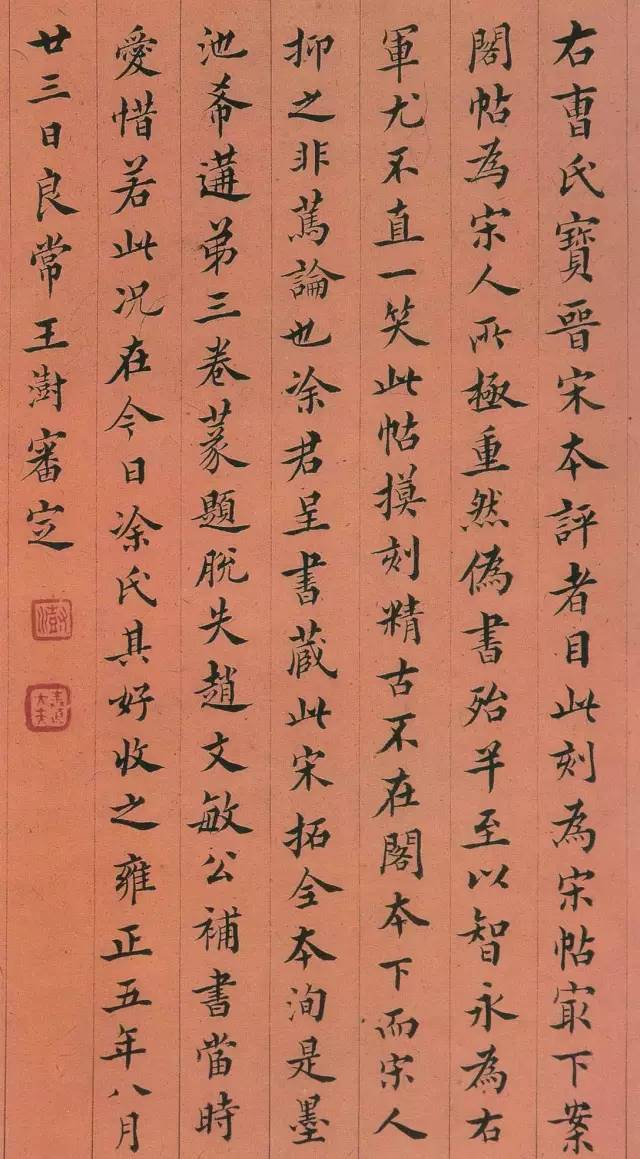 右曹氏寶晉宋本評者目此刻為宋帖冣下案
閣帖為宋人所極重然偽書殆半至以智永為右
軍尤不直一笑此帖摸刻精古不在閣本下而宋人
抑之非篤論也涂君呈書蔵此宋拓全本洵是墨
池希遘弟三卷篆題脫失趙文敏公補書當時
愛惜若此況在今日涂氏其好收之雍正五年八月
廿三日良常王澍審定
澍